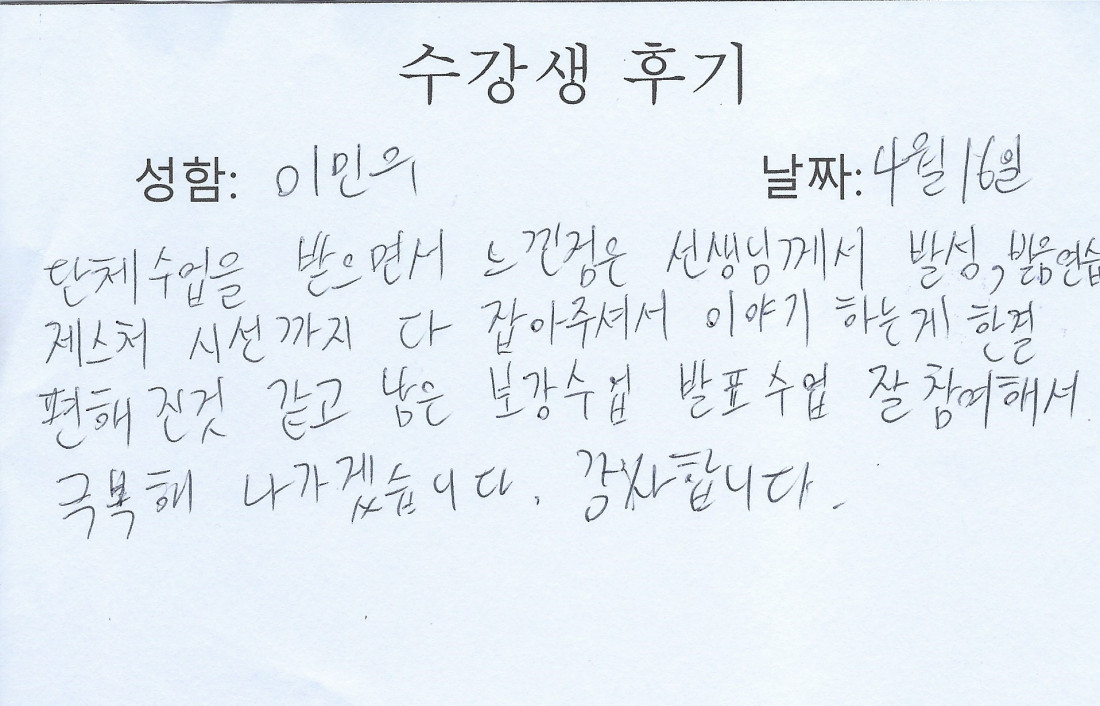 수강생 후기
성함: 이민의 날짜: 4월 16일
단체수업을 받으면서 느낀점은 선생님께서 발성, 발음연습
제스처 시선까지 다 잡아주셔서 이야기 하는게 한결
편해진것 같고 남은 보강수업 발표수업 잘 참여해서
극복해 나가겠습니다. 감사합니다.